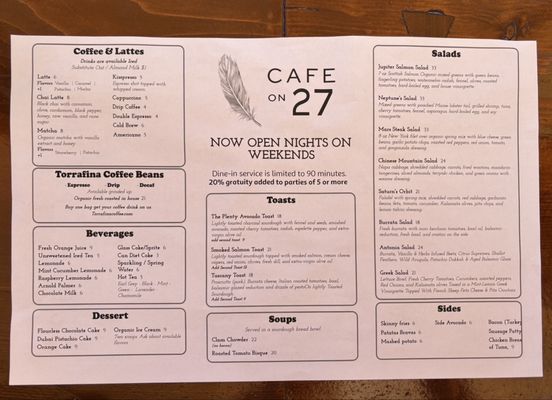 Coffee & Lattes
Drinks are available Iced
Substitute Oat / Almond Milk $1
Latte 6
Flavors Vanilla | Caramel |
+1 Pistachio | Mocha
Chai Latte 8
Black chai with cinnamon,
clove, cardamom, black pepper,
honey, raw vanilla, and raw
sugar
Matcha 8
Organic matcha with vanilla
extract and honey
Flavors Strawberry | Pistachio
+1
Kizspresso 5
Espresso shot topped with
whipped cream
Cappuccino 5
Drip Coffee 4
Double Espresso 4
Cold Brew 6
Americano 5
Torrafina Coffee Beans
Espresso Drip Decaf
Available grinded up
Organic fresh roasted in house 21
Buy one bag get your coffee drink on us
Torrafinacoffee.com
Beverages
Fresh Orange Juice 9
Unsweetened Iced Tea 5
Lemonade 5
Mint Cucumber Lemonade 6
Raspberry Lemonade 6
Arnold Palmer 6
Chocolate Milk 6
Glass Coke/Sprite 6
Can Diet Coke 3
Sparkling / Spring
Water 6
Hot Tea 5
Earl Grey - Black - Mint -
Green - Lavender -
Chamomile
Dessert
Flourless Chocolate Cake 9
Dubai Pistachio Cake 9
Orange Cake 9
Organic Ice Cream 9
Two scoops. Ask about available
flavors
CAFE
ON 27
NOW OPEN NIGHTS ON
WEEKENDS
Dine-in service is limited to 90 minutes.
20% gratuity added to parties of 5 or more
Toasts
The Plenty Avocado Toast 18
Lightly toasted charcoal sourdough with fennel and seeds, smashed
avocado, roasted cherry tomatoes, radish, espelette pepper, and extra
virgin olive oil
add second toast 9
Smoked Salmon Toast 21
Lightly toasted sourdough topped with smoked salmon, cream cheese
capers, red onions, chives, fresh dill, and extra-virgin olive oil
Add Second Toast 13
Tuscany Toast 18
Prosciutto (pork), Burrata cheese, Italian roasted tomatoes, basil,
balsamic glazed reduction and drizzle of pesto,On lightly Toasted
Sourdough
Add Second Toast 9
Soups
Served in a sourdough bread bowl
Clam Chowder 22
(no bacon)
Roasted Tomato Bisque 20
Salads
Jupiter Salmon Salad 33
7 oz Scottish Salmon Organic mixed greens with green beans,
fingerling potatoes, watermelon radish, fennel, olives, roasted tomatoes,
hard boiled egg, and house vinaigrette
Neptune's Salad 33
Mixed greens with poached Maine lobster tail, grilled shrimp, tuna,
cherry tomatoes, fennel, asparagus, hard boiled egg, and soy
vinaigrette
Mars Steak Salad 33
8 oz New York filet over organic spring mix with blue cheese, green
beans, garlic potato chips, roasted red peppers, red onion, tomato,
and gorgonzola dressing
Chinese Mountain Salad 24
Napa cabbage, shredded red cabbage, carrots, fried wontons, mandarin
tangerines, sliced almonds, teriyaki chicken, and green onions with
sesame dressing
Saturn's Orbit 21
Falafel with spring mix, shredded carrots, red cabbage, garbanzo
beans, feta, tomato, cucumber, Kalamata olives, pita chips, and
lemon tahini dressing
Burrata Salad 18
Fresh burrata with sun heirloom tomatoes, basil oil, balsamic
reduction, fresh basil, and crostini on the side
Antonia Salad 24
Burrata, Vanilla & Herbs Infused Beets, Citrus Supremes, Shallot
Feathers, Wild Arugula, Pistachio Dukkah & Aged Balsamic Glaze
Greek Salad 21
Lettuce Bowl, Fresh Cherry Tomatoes, Cucumbers, roasted peppers,
Red Onions, and Kalamata olives Tossed in a Mint-Lemon Greek
Vinaigrette Topped With French Sheep Feta Cheese & Pita Croutons
Sides
Skinny fries 6
Patatas Bravas 6
Mashed potato 6
Side Avocado 6
Bacon (Turkey
Sausage Patty
Chicken Breast
of Tuna, 9